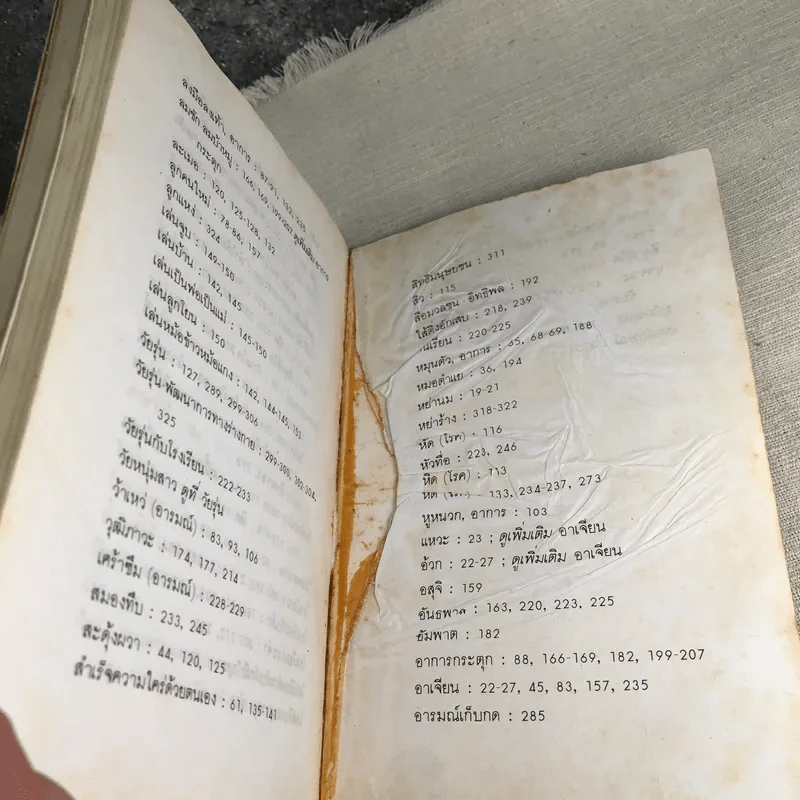 ลงมือลงเท้า, อาการ : 87-91, 132, 235
ลมชัก ลมบ้าหมู : 166-169, 199-207
กระตุก
ละเมอ : 120, 125-128, 132
ลูกคนใหม่ : 78-86, 157
ลูกแหง่ : 324
เล่นจูบ : 149-150
เล่นบ้าน : 142, 145
เล่นเป็นพ่อเป็นแม่ : 145-150
เล่นลูกโยน : 150
เล่นหม้อข้าวหม้อแกง : 142, 144-145, 153
วัยรุ่น : 127, 289, 299-306
วัยรุ่น-พัฒนาการทางร่างกาย : 299-300, 302-304,
325
วัยรุ่นกับโรงเรียน : 222-233
วัยหนุ่มสาว ดูที่ วัยรุ่น
ว้าเหว่ (อารมณ์) : 83, 93, 106
วุฒิภาวะ : 174, 177, 214
เศร้าซึม (อารมณ์) : 228-229
สมองทึบ : 233, 245
สะดุ้งผวา : 44, 120, 125
สำเร็จความใคร่ด้วยตนเอง : 61, 135-141
สิทธิมนุษยชน : 311
สิว : 115
สื่อมวลชน อิทธิพล : 192
ไส้ติ่งอักเสบ : 218, 239
นีเรียน : 220-225
หมุนตัว, อาการ : 65, 68-69, 188
หมอตำแย : 36, 194
หย่านม : 19-21
หย่าร้าง : 318-322
หัด (โรค) : 116
หัวทื่อ : 223, 246
หิด (โรค) : 113
133, 234-237, 273
หูหนวก, อาการ : 103
แหวะ : 23 ; ดูเพิ่มเติม อาเจียน
อ้วก : 22-27 ; ดูเพิ่มเติม อาเจียน
อสุจิ : 159
อันธพาล : 163, 220, 223, 225
อัมพาต : 182
อาการกระตุก : 88, 166-169, 182, 199-207
อาเจียน : 22-27, 45, 83, 157, 235
อารมณ์เก็บกด : 285